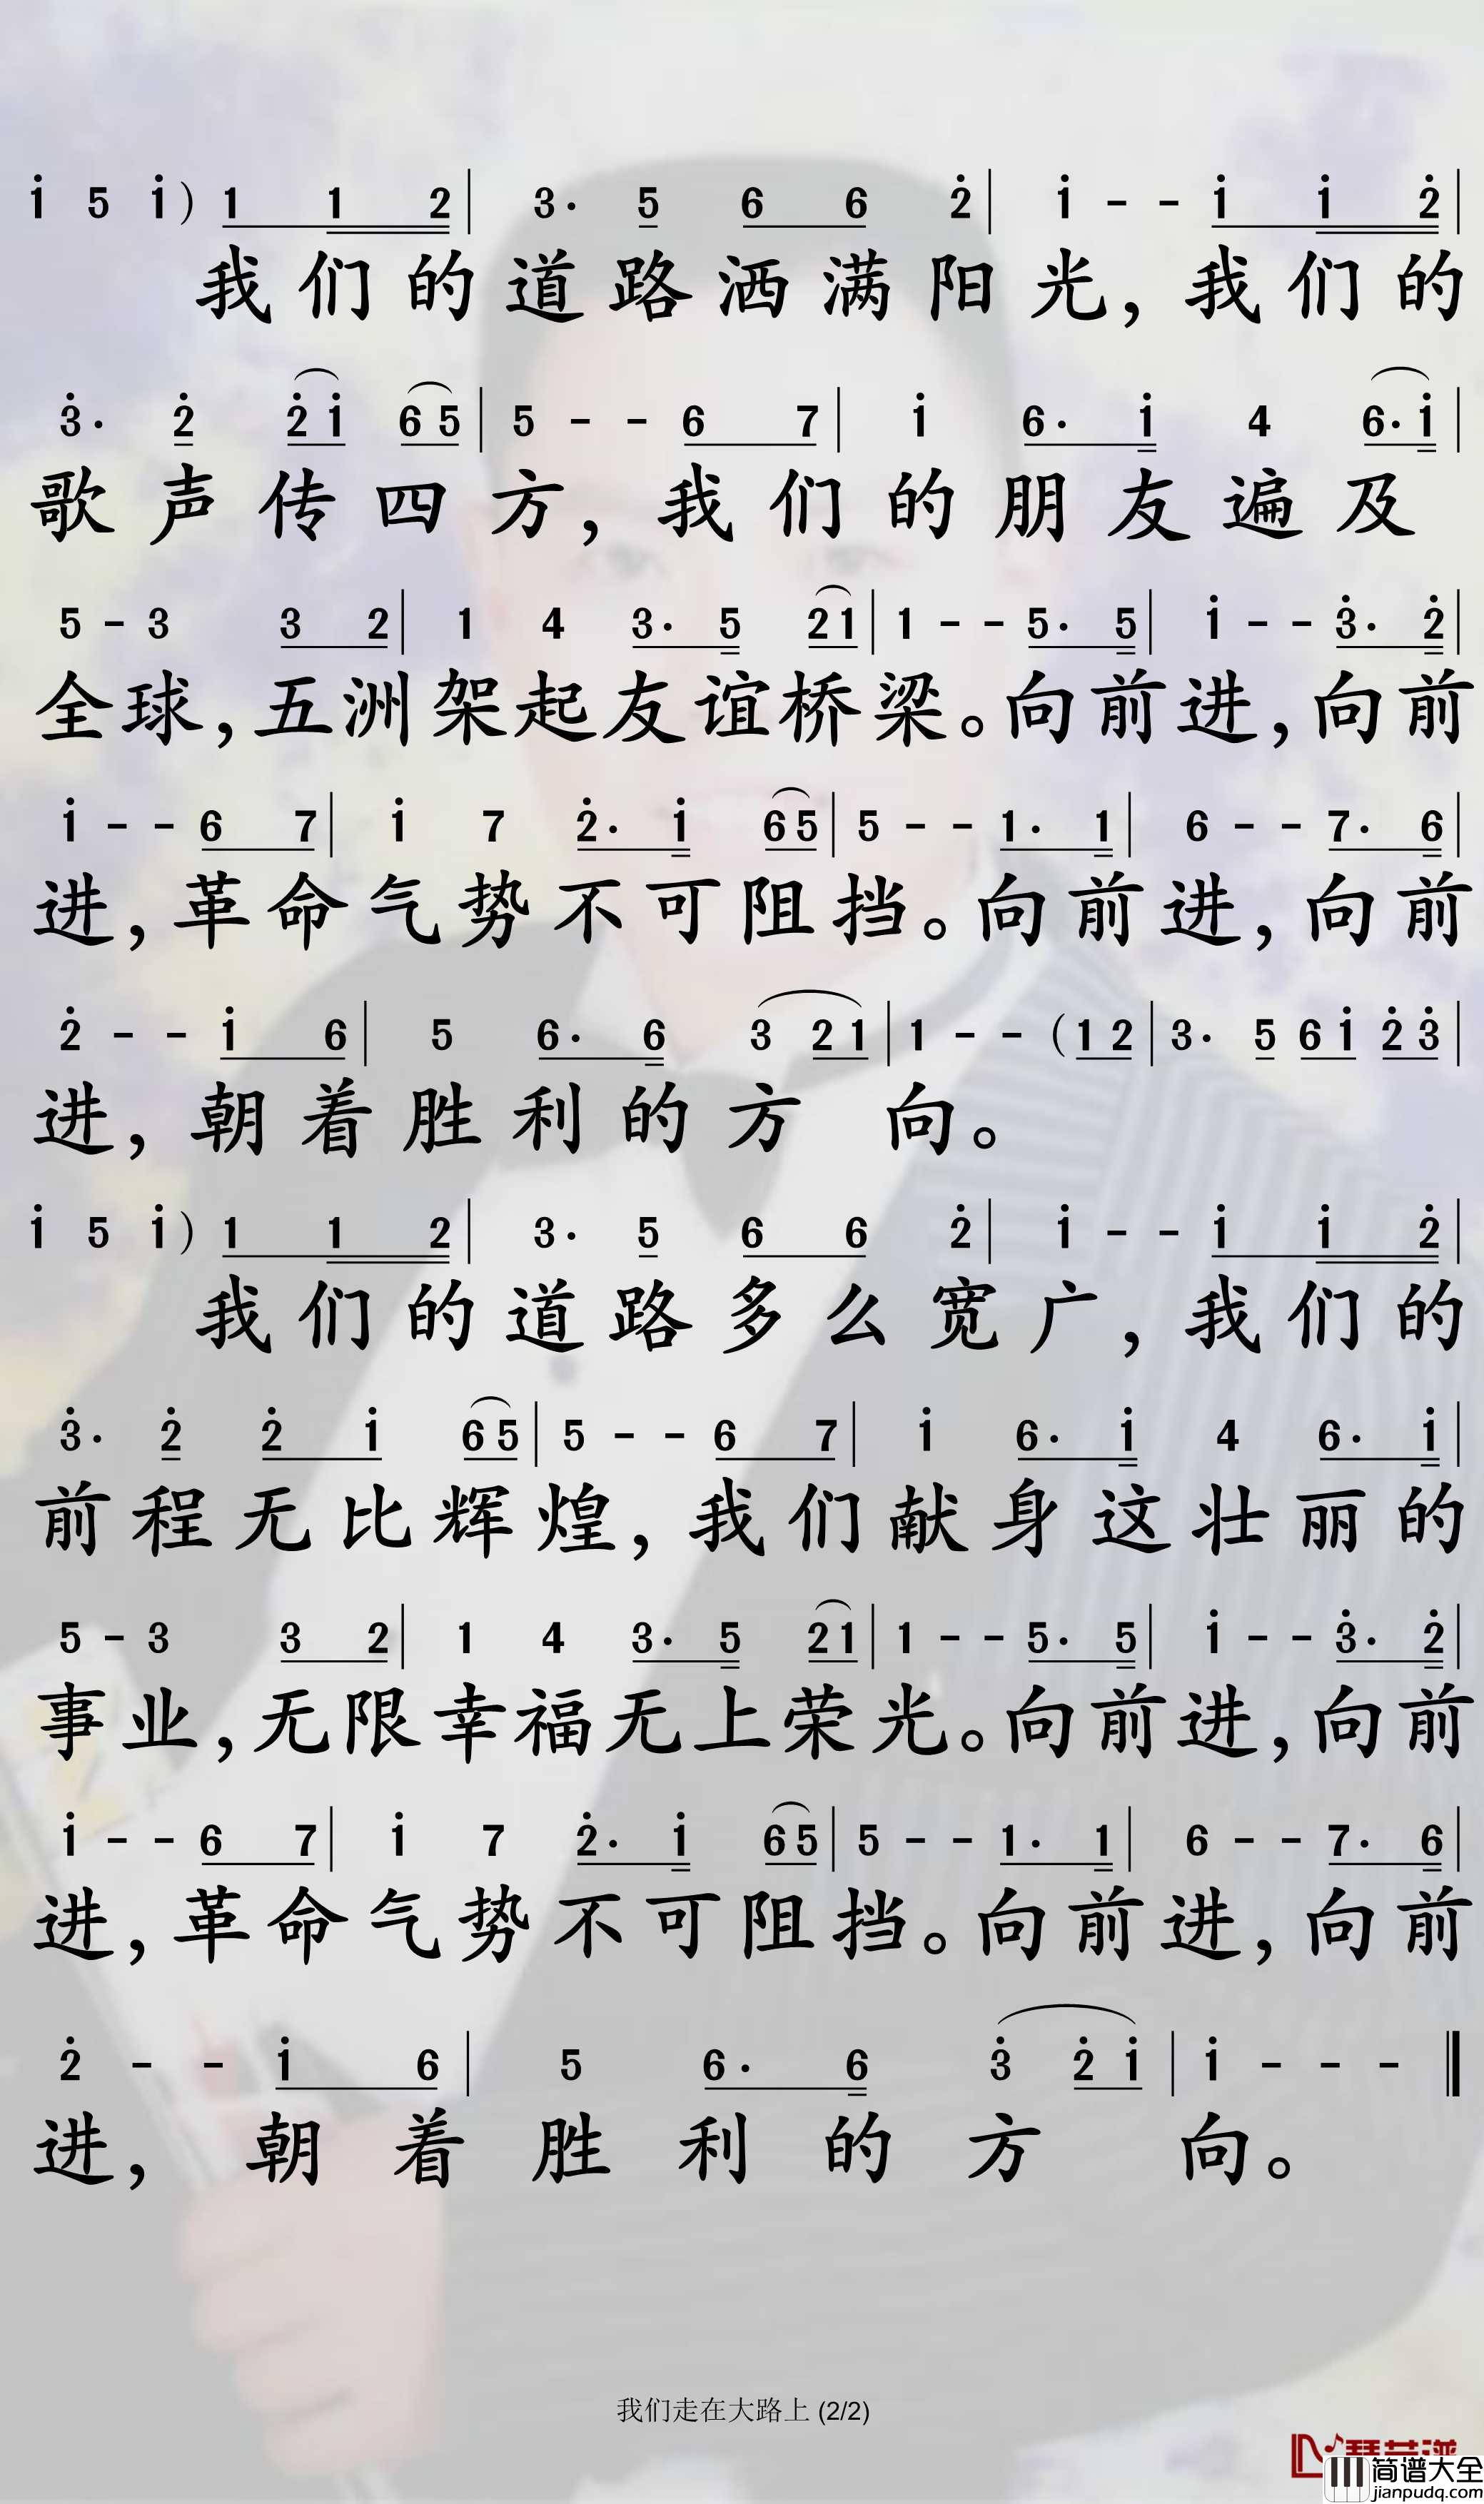 i 5 i) 1 1 2 | 3· 5 6 6 2̇ | i - - i i 2̇ |
我们的道路洒满阳光，我们的
3̇· 2̇ 2̇ i 6 5 | 5 - - 6 7 | i 6· i 4 6· i |
歌声传四方，我们的朋友遍及
5 - 3 3 2 | 1 4 3· 5 2 1 | 1 - - 5· 5 | i - - 3̇· 2̇ |
全球，五洲架起友谊桥梁。向前进，向前
i - - 6 7 | i 7 2̇· i 6 5 | 5 - - 1· 1 | 6 - - 7· 6 |
进，革命气势不可阻挡。向前进，向前
2̇ - - i 6 | 5 6· 6 3 2 1 | 1 - - (1 2 | 3· 5 6 i 2̇ 3̇ |
进，朝着胜利的方向。
i 5 i) 1 1 2 | 3· 5 6 6 2̇ | i - - i i 2̇ |
我们的道路多么宽广，我们的
3̇· 2̇ 2̇ i 6 5 | 5 - - 6 7 | i 6· i 4 6· i |
前程无比辉煌，我们献身这壮丽的
5 - 3 3 2 | 1 4 3· 5 2 1 | 1 - - 5· 5 | i - - 3̇· 2̇ |
事业，无限幸福无上荣光。向前进，向前
i - - 6 7 | i 7 2̇· i 6 5 | 5 - - 1· 1 | 6 - - 7· 6 |
进，革命气势不可阻挡。向前进，向前
2̇ - - i 6 | 5 6· 6 3̇ 2̇ i | i - - - ‖
进，朝着胜利的方向。
我们走在大路上 (2/2)
简谱大全
jianpudq.com